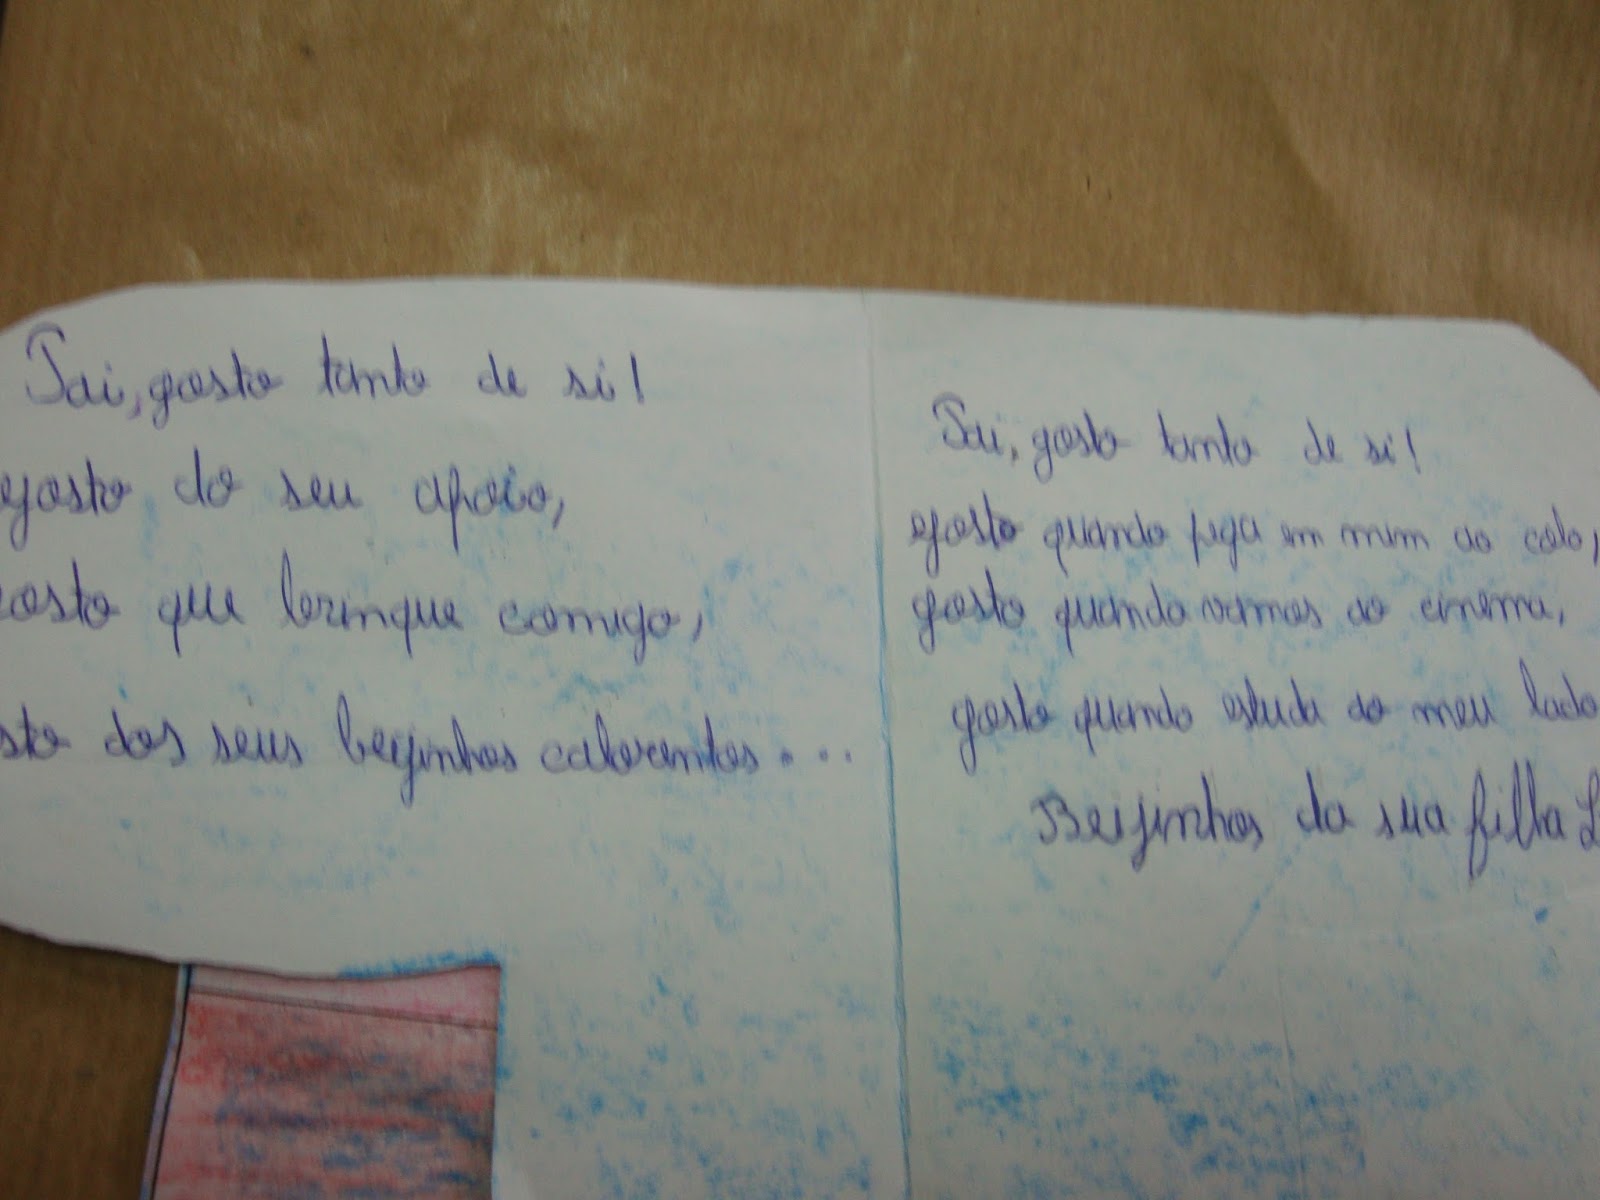 Pai, gosto tanto de si!
gosto do seu apoio,
gosto que brinque comigo,
sto dos seus beijinhos calorentos....
Pai, gosto tanto de si!
gosto quando pega em mim ao colo,
gosto quando vamos ao cinema,
gosto quando estuda ao meu lado
Beijinhos da sua filha